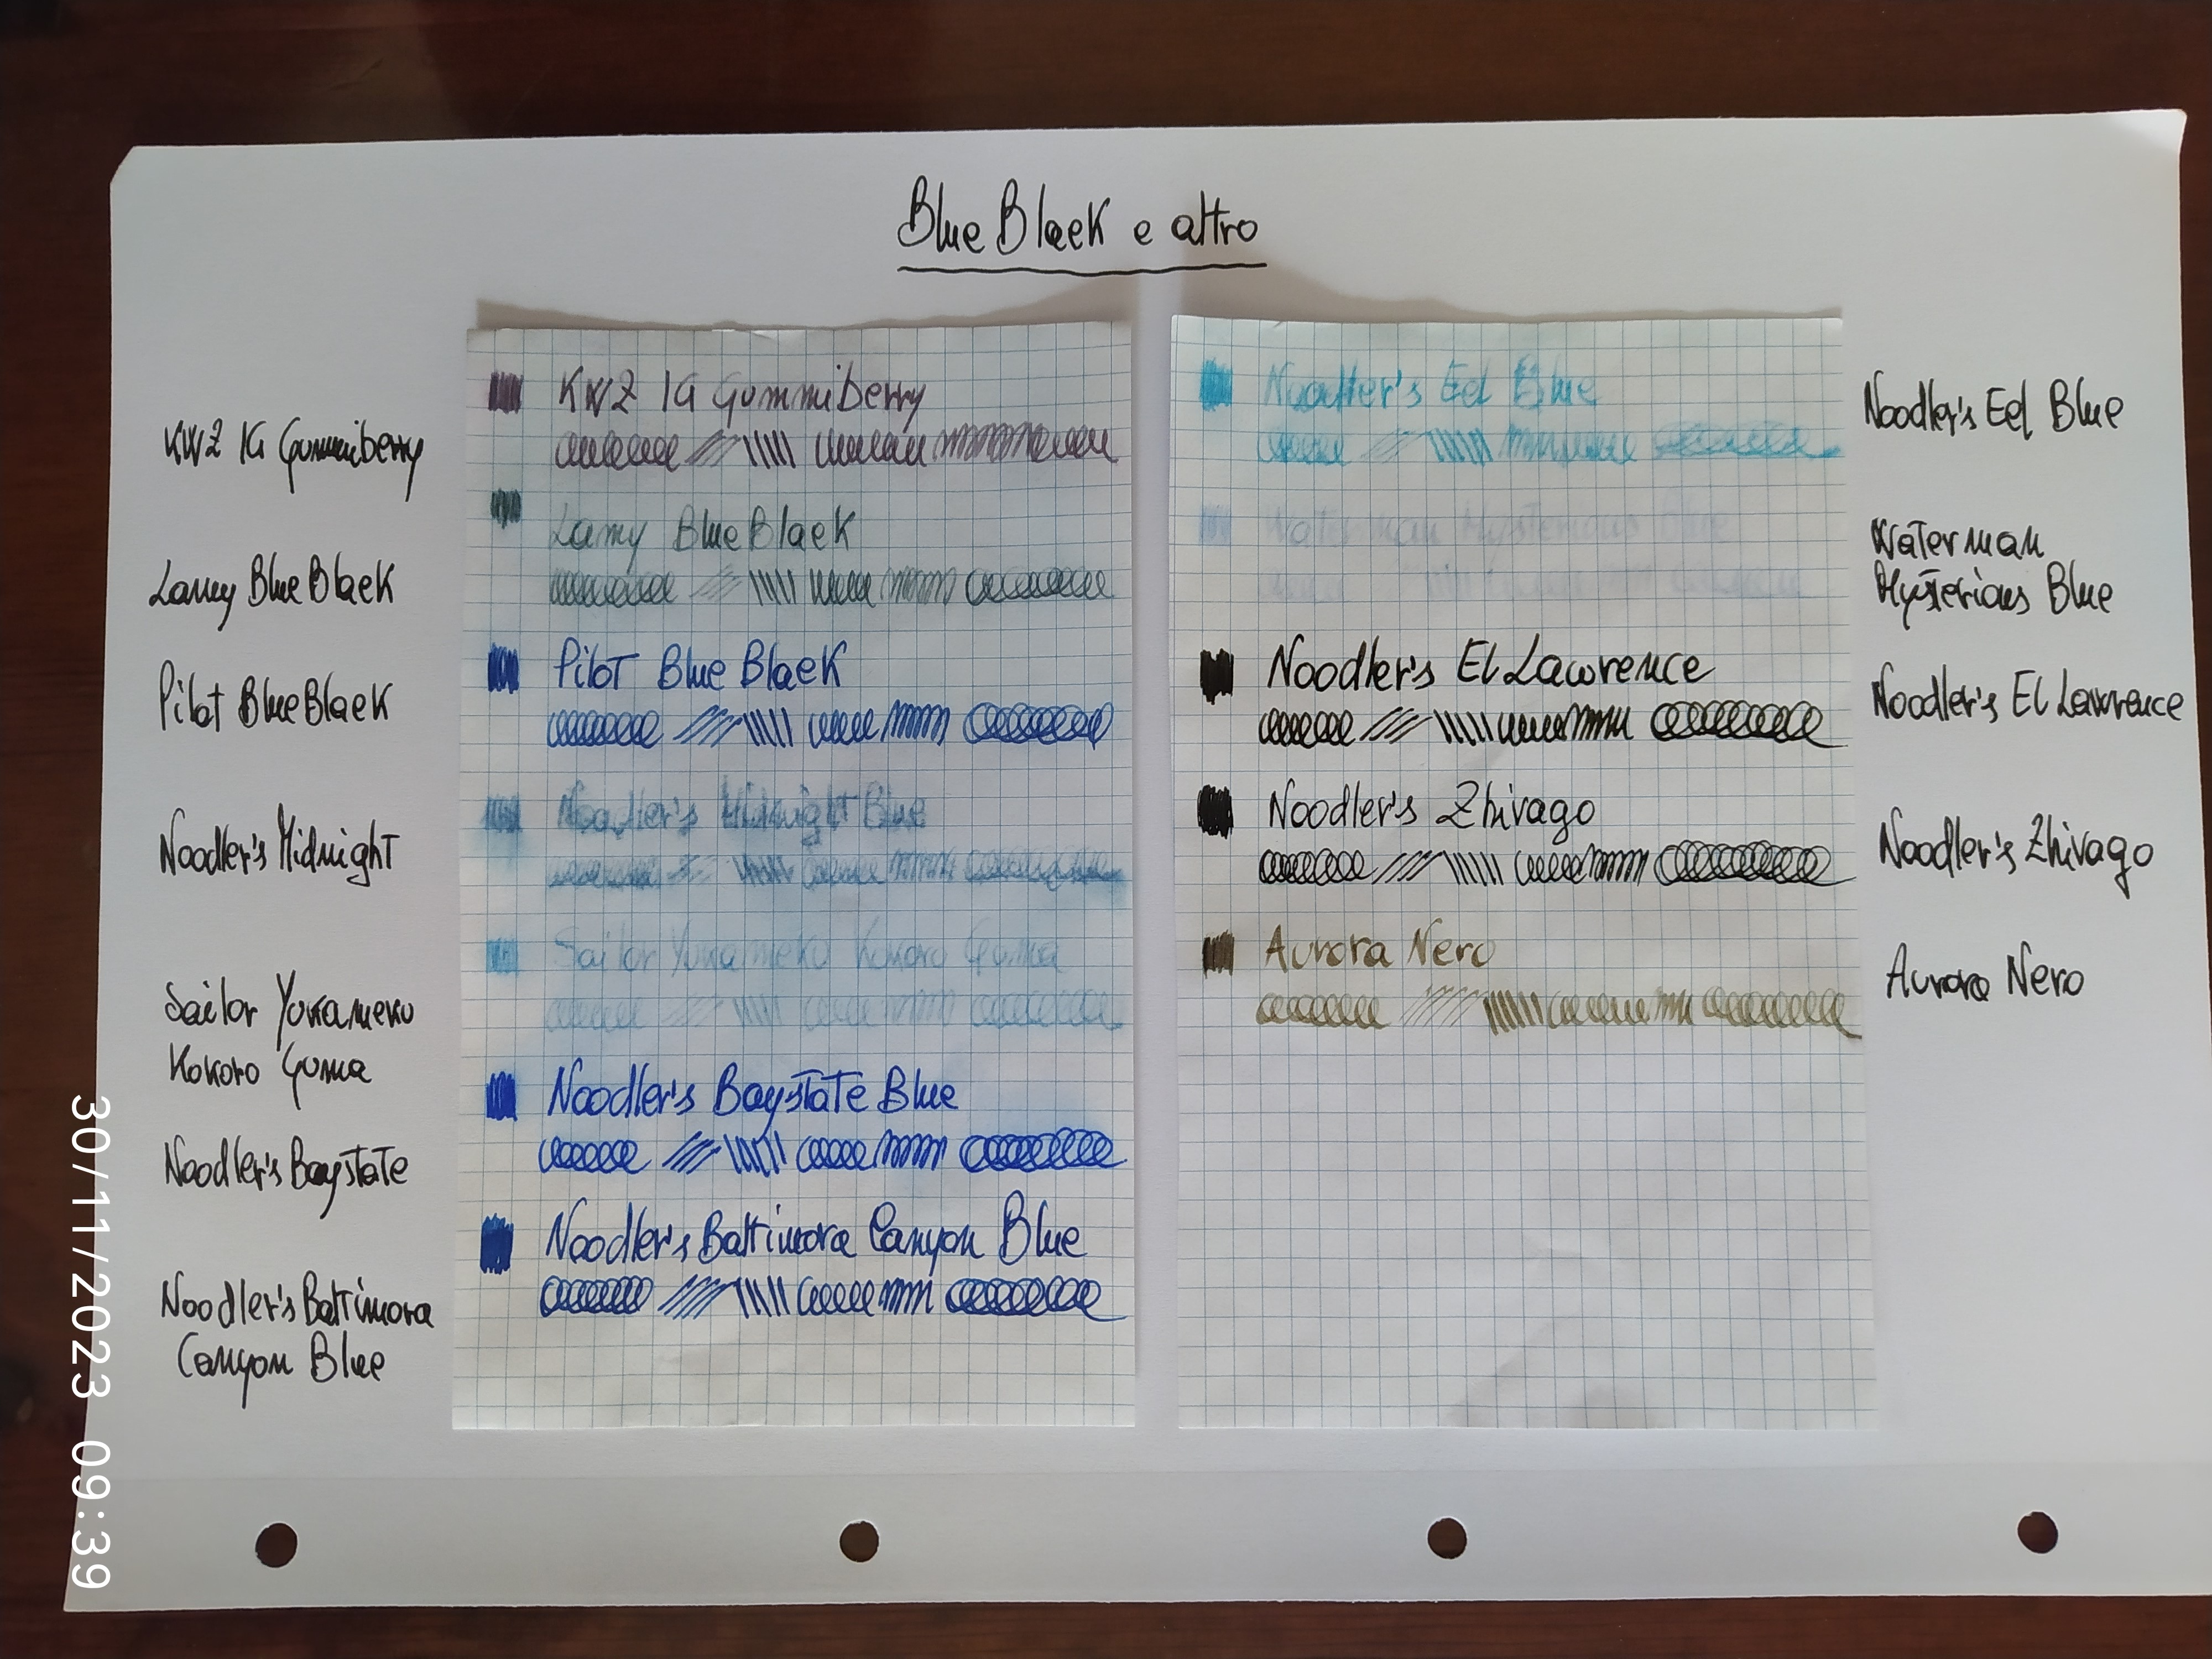 Blue Black e altro
KWZ IG Gummiberry
Lamy Blue Black
Pilot Blue Black
Noodler's Midnight
Sailor Yukameku
Kokoro Guma
Noodler's Baystate
Noodler's Baltimora
Canyon Blue
KWZ IG Gummiberry
Lamy Blue Black
Pilot Blue Black
Noodler's Midnight Blue
Sailor Yukameku Kokoro Guma
Noodler's Baystate Blue
Noodler's Baltimora Canyon Blue
Noodler's Eel Blue
Waterman Mysterious Blue
Noodler's El Lawrence
Noodler's Zhivago
Aurora Nero
Noodler's Eel Blue
Waterman
Mysterious Blue
Noodler's El Lawrence
Noodler's Zhivago
Aurora Nero
30/11/2023 09:39